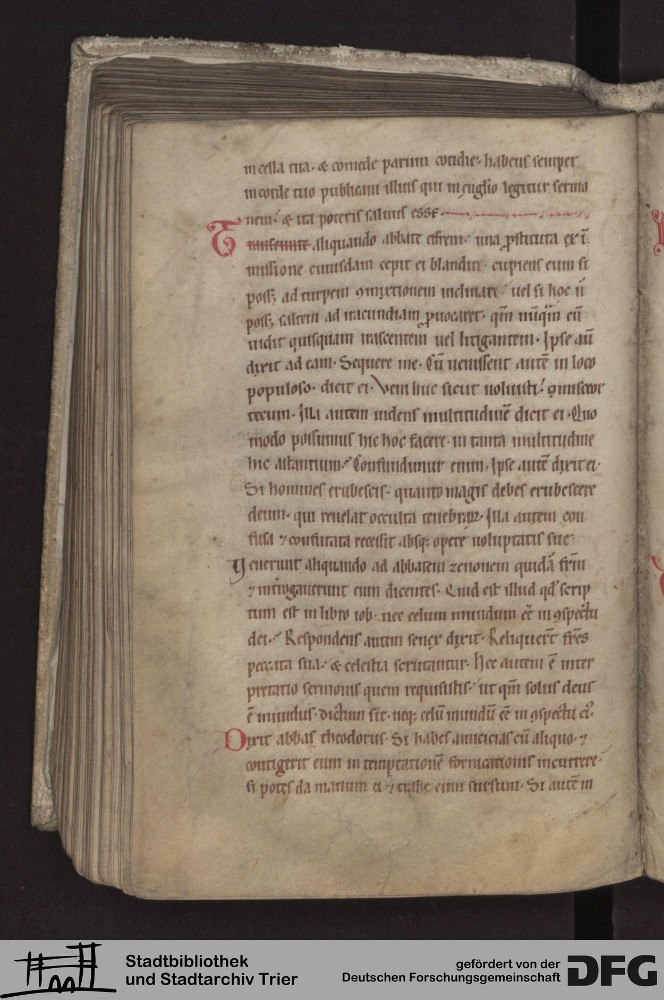 in cella tua · & comede parum cotidie · habens semper
in corde tuo publicani illius qui in euglio legitur sermo
nem · & ita poteris saluus esse
Transeunte aliquando abbate effrem · una ꝓstituta ex ī
missione cuiusdam cepit ei blandiri · cupiens eum si
poss; ad turpem ꝯmixtionem inclinare · uel si hoc ñ
poss; saltem ad iracundiam ꝓuocaret · qm̄ nūquā eū
uidit quisquam irascentem uel litigantem · Ipse aū
dixit ad eam · Sequere me · Cū uenissent autē in loco
populoso · dicit ei · Veni huc sicut uoluisti · ꝯmisceor
tecum · Illa autem uidens multitudinē dicit ei · Quo
modo possumus hic hoc facere · in tanta multitudine
hic astantium · Confundimur enim · Ipse autē dixit ei ·
Si homines erubescis · quanto magis debes erubescere
deum · qui reuelat occulta tenebraꝝ · Illa autem con
fusa ⁊ confutata recessit absq; opere uoluptatis sue ·
Venerunt aliquando ad abbatem zenonem quidā frīm
⁊ introgauerunt eum dicentes · Quid est illud qd̓ scrip
tum est in libro iob · nec celum mundum eē in ꝯspectu
dei · Respondens autem senex dixit · Reliquerūt frēs
peccata sua · & celestia scrutantur · Hec autem ē inter
pretatio sermonis quem requisistis · ut qm̄ solus deus
ē mundus · dictum sit · neq; celū mundū eē in ꝯspectu ei᾽ ·
Dixit abbas theodorus · Si habes amicicias cū aliquo · ⁊
contigerit eum in temptationē fornicationis incurrere ·
si potes da manum ei ⁊ trahe eum sursum · Si autē in
Stadtbibliothek
und Stadtarchiv Trier
gefördert von der
Deutschen Forschungsgemeinschaft
DFG